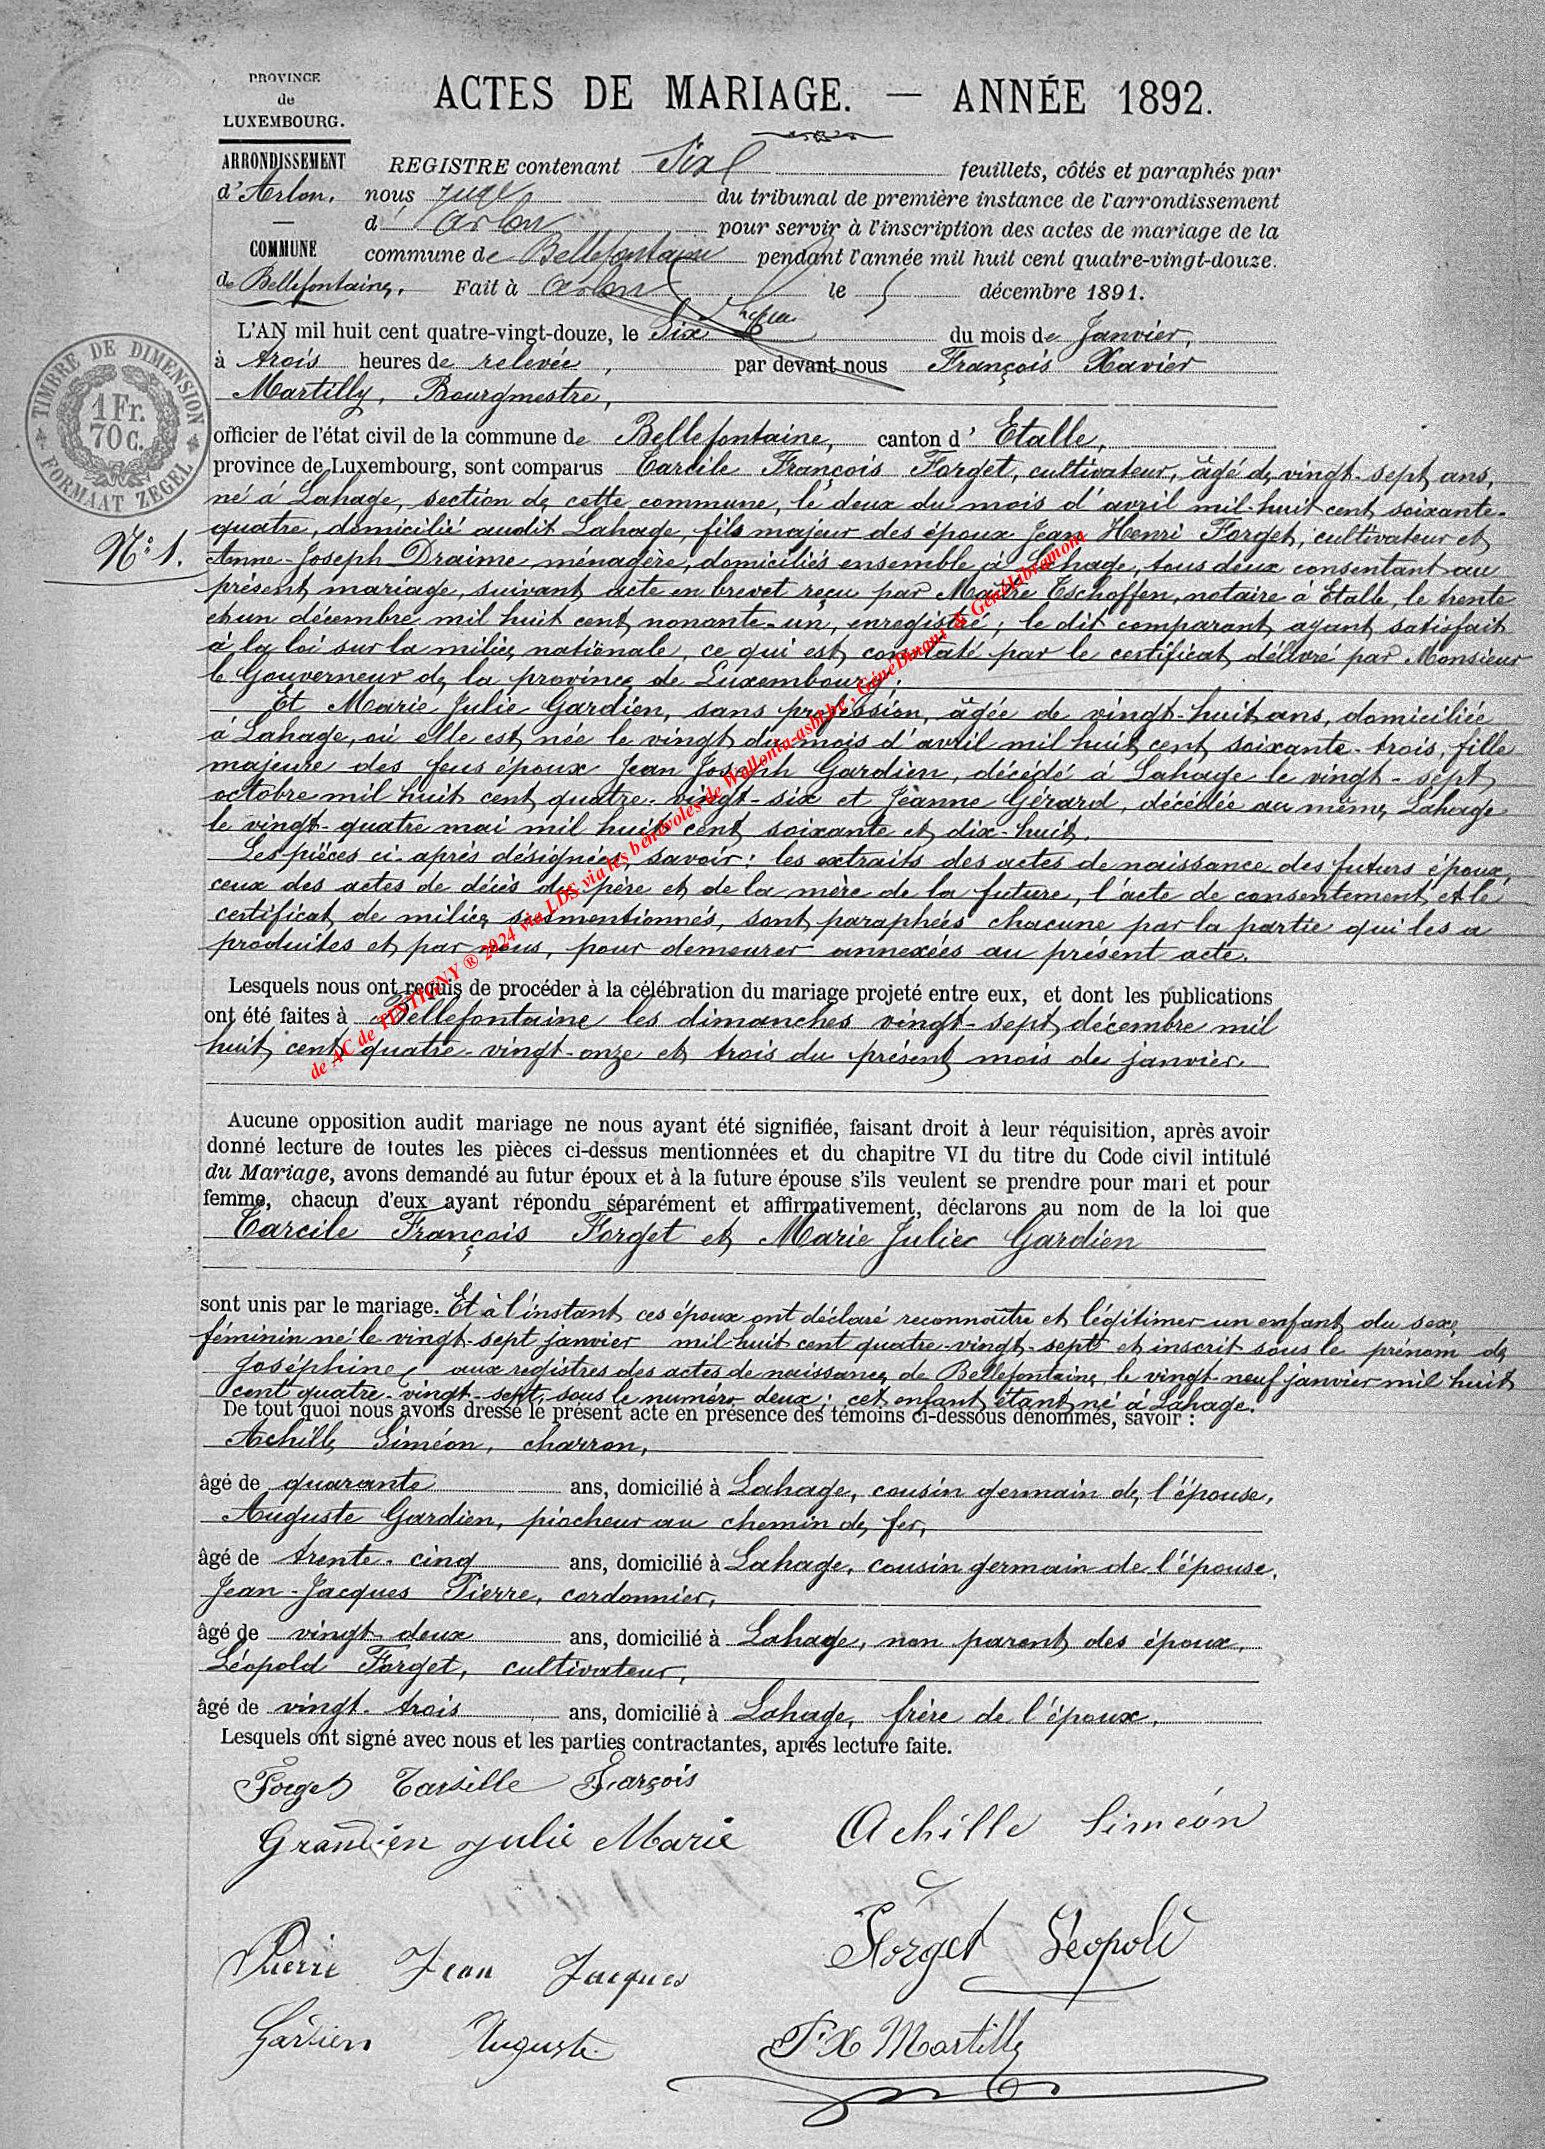 PROVINCE
de
LUXEMBOURG.
ARRONDISSEMENT
d'Arlon.
COMMUNE
de Bellefontaine.
ACTES DE MARIAGE. — ANNÉE 1892.
REGISTRE contenant Six feuillets, côtés et paraphés par
nous juge du tribunal de première instance de l'arrondissement
d' Arlon pour servir à l'inscription des actes de mariage de la
commune de Bellefontaine pendant l'année mil huit cent quatre-vingt-douze.
Fait à Arlon le 5 décembre 1891.
TIMBRE DE DIMENSION
1 Fr.
70 C.
FORMAAT ZEGEL
L'AN mil huit cent quatre-vingt-douze, le Six du mois de Janvier,
à trois heures de relevée, par devant nous François Xavier
Martilly, Bourgmestre,
officier de l'état civil de la commune de Bellefontaine, canton d' Etalle,
province de Luxembourg, sont comparus Tarcile François Forget, cultivateur, âgé de vingt-sept ans,
né à Lahage, section de cette commune, le deux du mois d'avril mil-huit cent soixante-
N° 1.
quatre, domicilié audit Lahage, fils majeur des époux Jean Henri Forget, cultivateur et
Anne-Joseph Draime ménagère, domiciliés ensemble à Lahage, tous deux consentant au
présent mariage, suivant acte en brevet reçu par Maître Tschoffen, notaire à Etalle, le trente
et un décembre mil huit cent nonante-un, enregistré; le dit comparant ayant satisfait
à la loi sur la milice nationale, ce qui est constaté par le certificat délivré par Monsieur
le Gouverneur de la province de Luxembourg;
Et Marie Julie Gardien, sans profession, âgée de vingt-huit ans, domiciliée
à Lahage, où elle est née le vingt du mois d'avril mil huit cent soixante-trois, fille
majeure des feus époux Jean Joseph Gardien, décédé à Lahage le vingt-sept
octobre mil huit cent quatre-vingt-six et Jeanne Gérard, décédée au même Lahage
le vingt-quatre mai mil huit cent soixante et dix-huit
Les pièces ci-après désignées, savoir: les extraits des actes de naissance des futurs époux,
ceux des actes de décès du père et de la mère de la future, l'acte de consentement et le
certificat de milice susmentionnés, sont paraphées chacune par la partie qui les a
produites et par nous, pour demeurer annexées au présent acte.
de AC de TINTIGNY ® 2024 via LDS via les bénévoles de Wallonia-asbl.be, GénéDinant & GénéLibramont
Lesquels nous ont requis de procéder à la célébration du mariage projeté entre eux, et dont les publications
ont été faites à Bellefontaine les dimanches vingt-sept décembre mil
huit cent quatre-vingt-onze et trois du présent mois de janvier.
Aucune opposition audit mariage ne nous ayant été signifiée, faisant droit à leur réquisition, après avoir
donné lecture de toutes les pièces ci-dessus mentionnées et du chapitre VI du titre du Code civil intitulé
du Mariage, avons demandé au futur époux et à la future épouse s'ils veulent se prendre pour mari et pour
femme, chacun d'eux ayant répondu séparément et affirmativement, déclarons au nom de la loi que
Tarcile François Forget et Marie Julie Gardien
sont unis par le mariage. Et à l'instant ces époux ont déclaré reconnoître et légitimer un enfant du sexe
féminin né le vingt-sept janvier mil-huit cent quatre-vingt-sept et inscrit sous le prénom de
Joséphine aux registres des actes de naissance de Bellefontaine le vingt-neuf janvier mil huit
cent quatre-vingt-sept, sous le numéro deux; cet enfant étant né à Lahage.
De tout quoi nous avons dressé le présent acte en présence des témoins ci-dessous dénommés, savoir :
Achille Siméon, charron,
âgé de quarante ans, domicilié à Lahage, cousin germain de l'épouse,
Auguste Gardien, piocheur au chemin de fer,
âgé de trente-cinq ans, domicilié à Lahage, cousin germain de l'épouse,
Jean-Jacques Pierre, cordonnier,
âgé de vingt-deux ans, domicilié à Lahage, non parent des époux,
Léopold Forget, cultivateur,
âgé de vingt-trois ans, domicilié à Lahage, frère de l'époux.
Lesquels ont signé avec nous et les parties contractantes, après lecture faite.
Forget Tarsille François
Achille Siméon
Grandien julie Marie
Forget Léopold
Pierre Jean Jacques
Gardien Auguste
F. X Martilly